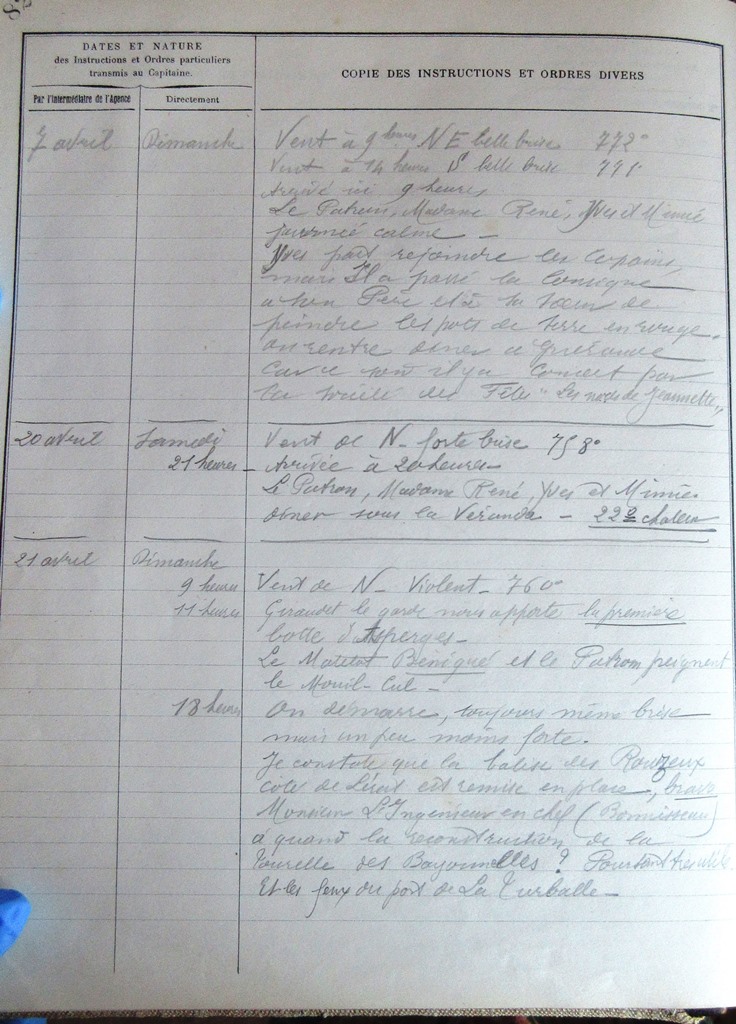 82
DATES ET NATURE
des Instructions et Ordres particuliers
transmis au Capitaine.
COPIE DES INSTRUCTIONS ET ORDRES DIVERS
Par l'Intermédiaire de l'Agence
Directement
7 avril Dimanche Vent à 9 heures NE belle brise 772°
Vent à 14 heures S belle brise 771°
Arrivé ici 9 heures
Le Patron, Madame René, Yves et Mimie
journée calme —
Yves part rejoindre les Copains,
mais Il a passé la Consigne
a son Père et à sa Sœur de
peindre les pots de terre en rouge.
on rentre dîner a Guérande
Car ce soir il y a Concert par
la Société des Fêtes "Les noces de Jeannette"
20 avril Samedi Vent de N — forte brise 758°
21 heures — Arrivée à 20 heures —
Le Patron, Madame René, Yves et Mimie
dîner sous la Véranda — 22° chaleur
21 avril Dimanche
9 heures Vent de N — Violent — 760°
11 heures Giraudet le garde nous apporte la première
botte d'Asperges —
Le Matelot Bénigué et le Patron peignent
le Mouil-Cul —
18 heures On démarre, toujours même brise
mais un peu moins forte.
Je constate que la balise des Rouzeux
côté de Lérat est remise en place, bravo
Monsieur L'Ingenieur en chef (Bonnisseau)
à quand la reconstruction de la
Tourelle des Bayonnelles ? Pourtant très utile
Et les feux du port de La Turballe —